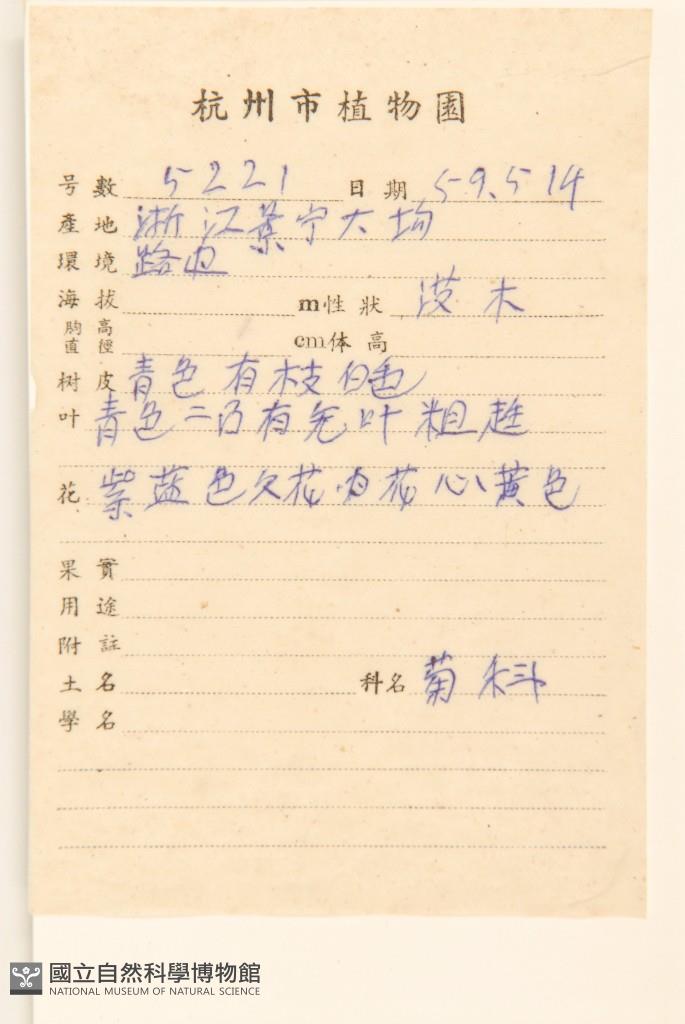 杭州市植物園
号數 5221 日期 59.5.14
產地 浙江景宁大均
環境 路边
海拔 m性狀 草木
胸高直徑 cm体高
树皮 青色有枝白色
叶 青色二 有 叶粗
花 紫蓝色 花 花心黃色
果實
用途
附註
土名 科名 菊科
學名
國立自然科學博物館
NATIONAL MUSEUM OF NATURAL SCIENCE